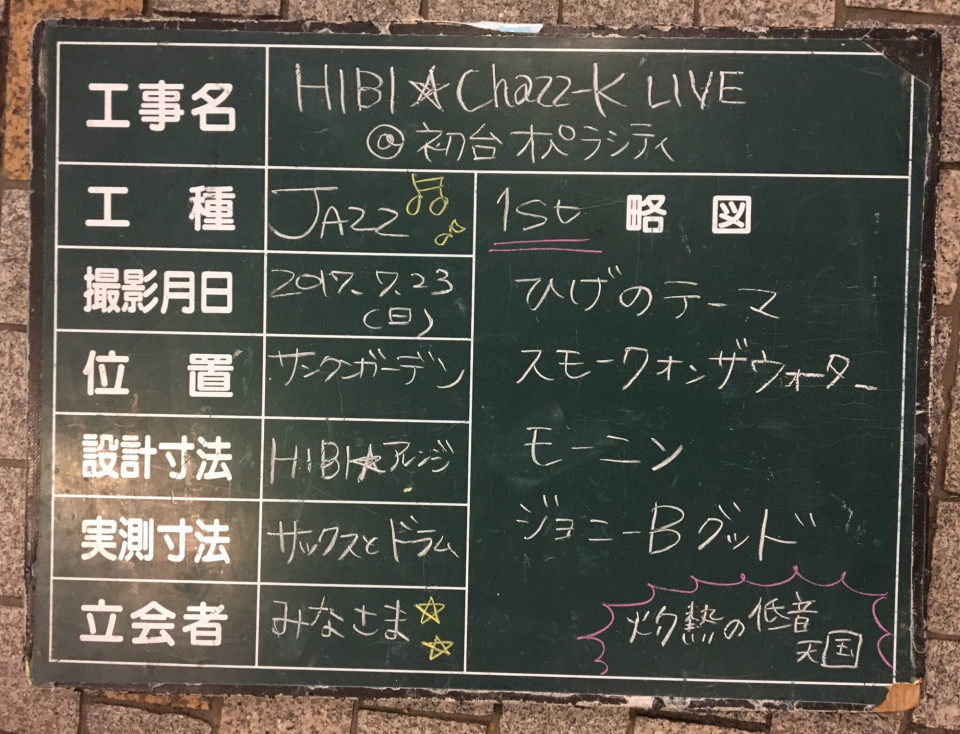 工事名 HIBI☆Chazz-K LIVE
@初台オペラシティ
工種 JAZZ
撮影月日 2017.7.23
(日)
位置 サンクンガーデン
設計寸法 HIBI☆アレンジ
実測寸法 サックスとドラム
立会者 みなさま☆☆
1st 略図
ひげのテーマ
スモークオンザウォーター
モーニン
ジョニーBグッド
灼熱の低音
天国